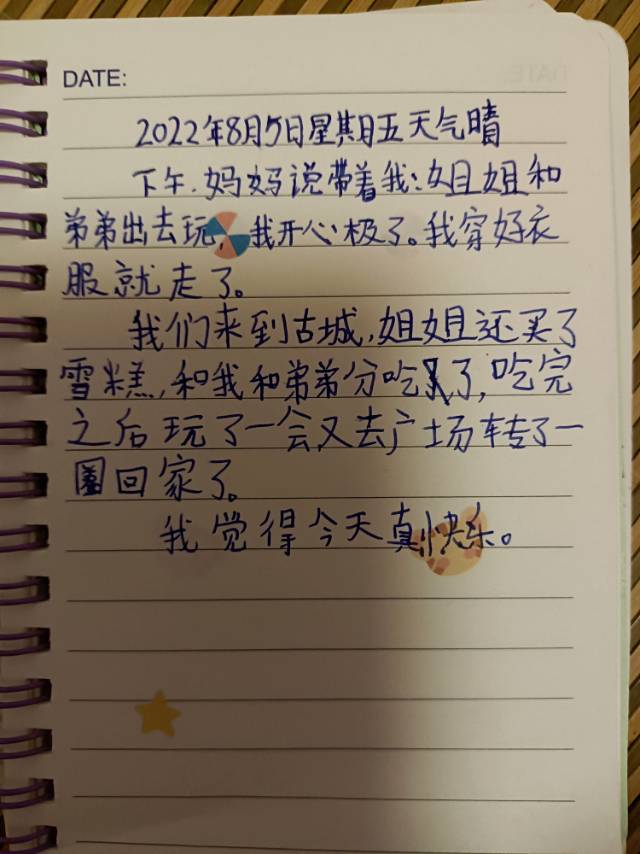 DATE:
2022年8月5日星期五天气晴
下午.妈妈说带着我:姐姐和
弟弟出去玩,我开心极了。我穿好衣
服就走了。
我们来到古城,姐姐还买了
雪糕,和我和弟弟分吃了,吃完
之后玩了一会,又去广场转了一
圈回家了。
我觉得今天真快乐。